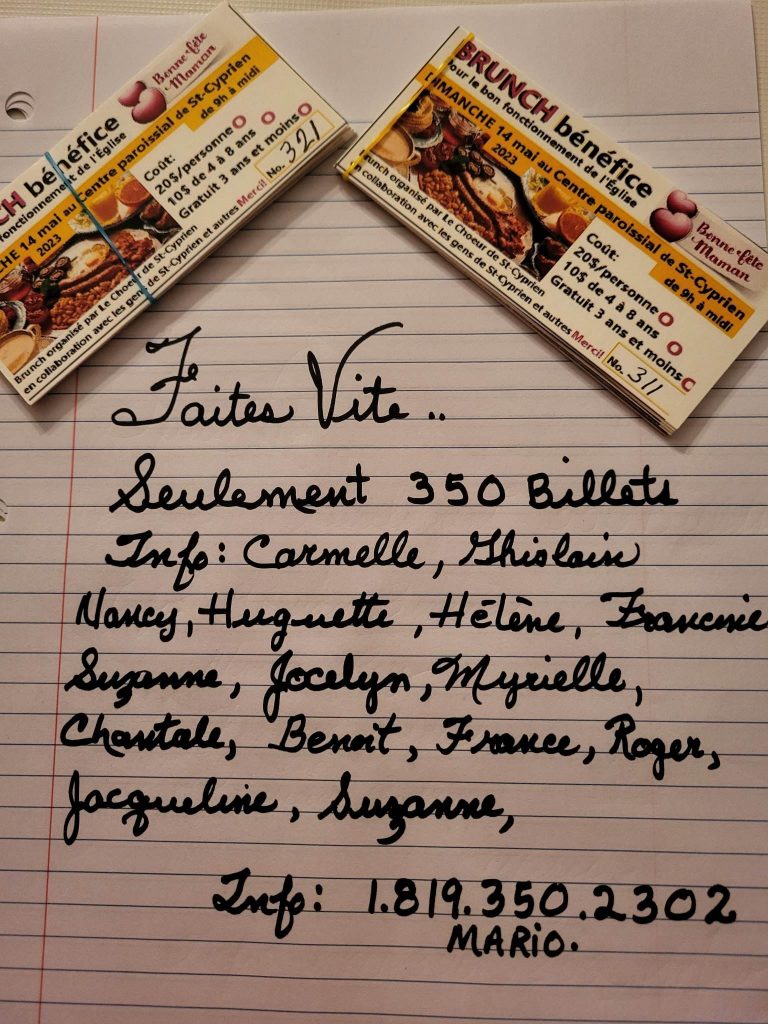 CH bénéfice
fonctionnement de l'Église
Bonne fête
Maman
CHE 14 mai au Centre paroissial de St-Cyprien
2023
de 9h à midi
Coût:
20$/personne
10$ de 4 à 8 ans
Gratuit 3 ans et moins
No. 321
Brunch organisé par Le Choeur de St-Cyprien
en collaboration avec les gens de St-Cyprien et autres Merci!
BRUNCH bénéfice
Pour le bon fonctionnement de l'Église
Bonne fête
Maman
DIMANCHE 14 mai au Centre paroissial de St-Cyprien
2023
de 9h à midi
Coût:
20$/personne
10$ de 4 à 8 ans
Gratuit 3 ans et moins
No. 311
Brunch organisé par Le Choeur de St-Cyprien
en collaboration avec les gens de St-Cyprien et autres Merci!
Faites Vite..
Seulement 350 Billets
Info: Carmelle, Ghislain
Nancy, Huguette, Hélène, Francine
Suzanne, Jocelyn, Myrielle,
Chantale, Benoit, France, Roger,
Jacqueline, Suzanne,
Info: 1.819.350.2302
MARIO.